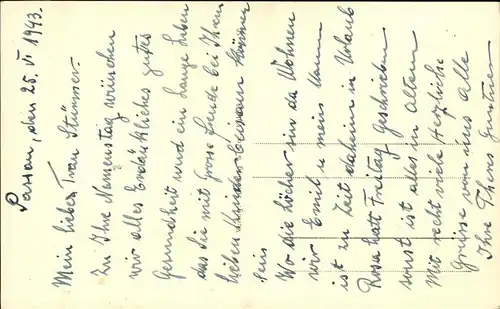 Passau, den 25. VI 1943.
Mein liebes Frau Stümmer.
Zu Ihre Namenstag wünschen
wir alles Erdänkliches gutes
Gesundheit und ein lange Leben
das Sie mit grose Freude bei Ihren
lieben
sein
Wo die Löcher sin da Wohnen
wir Emil u mein Mann
ist zu Zeit daheim in Urlaub
Rosa hatt Freitag geschrieben
sonst ist alles in Altem
Mit recht viele Herzliche
Grüsse von uns Alle
Ihre